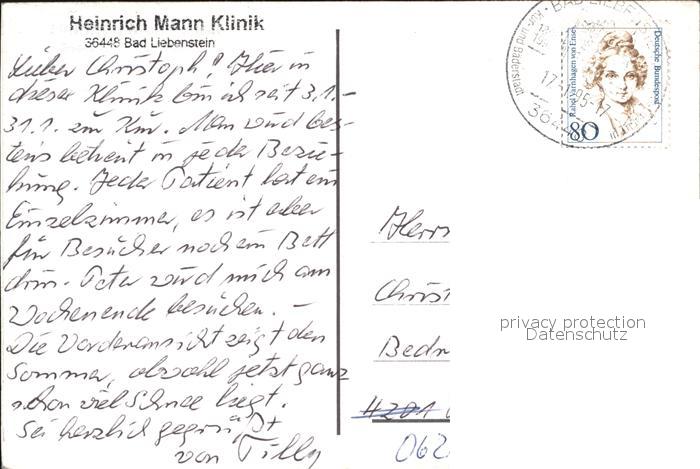 Heinrich Mann Klinik
36448 Bad Liebenstein
Lieber Christoph! Hier in
dieser Klinik bin ich seit 3.1.-
31.1. zur Kur. Man wird bes-
tens betreut in jeder Bezie-
hung. Jeder Patient hat ein
Einzelzimmer, es ist aber
für Besucher noch ein Bett
drin. Peter wird mich am
Wochenende besuchen. -
Die Vorderansicht zeigt den
Sommer, obwohl jetzt ganz
schon viel Schnee liegt.
Sei herzlich gegrüßt
von Tilly
BAD LIEBE
Kur- und Badeanstalt
17. 95-17
364
Rahel Varnhagen von Ense
Deutsche Bundespost
80
Herr
Christ
Bedn
4201
062
privacy protection
Datenschutz